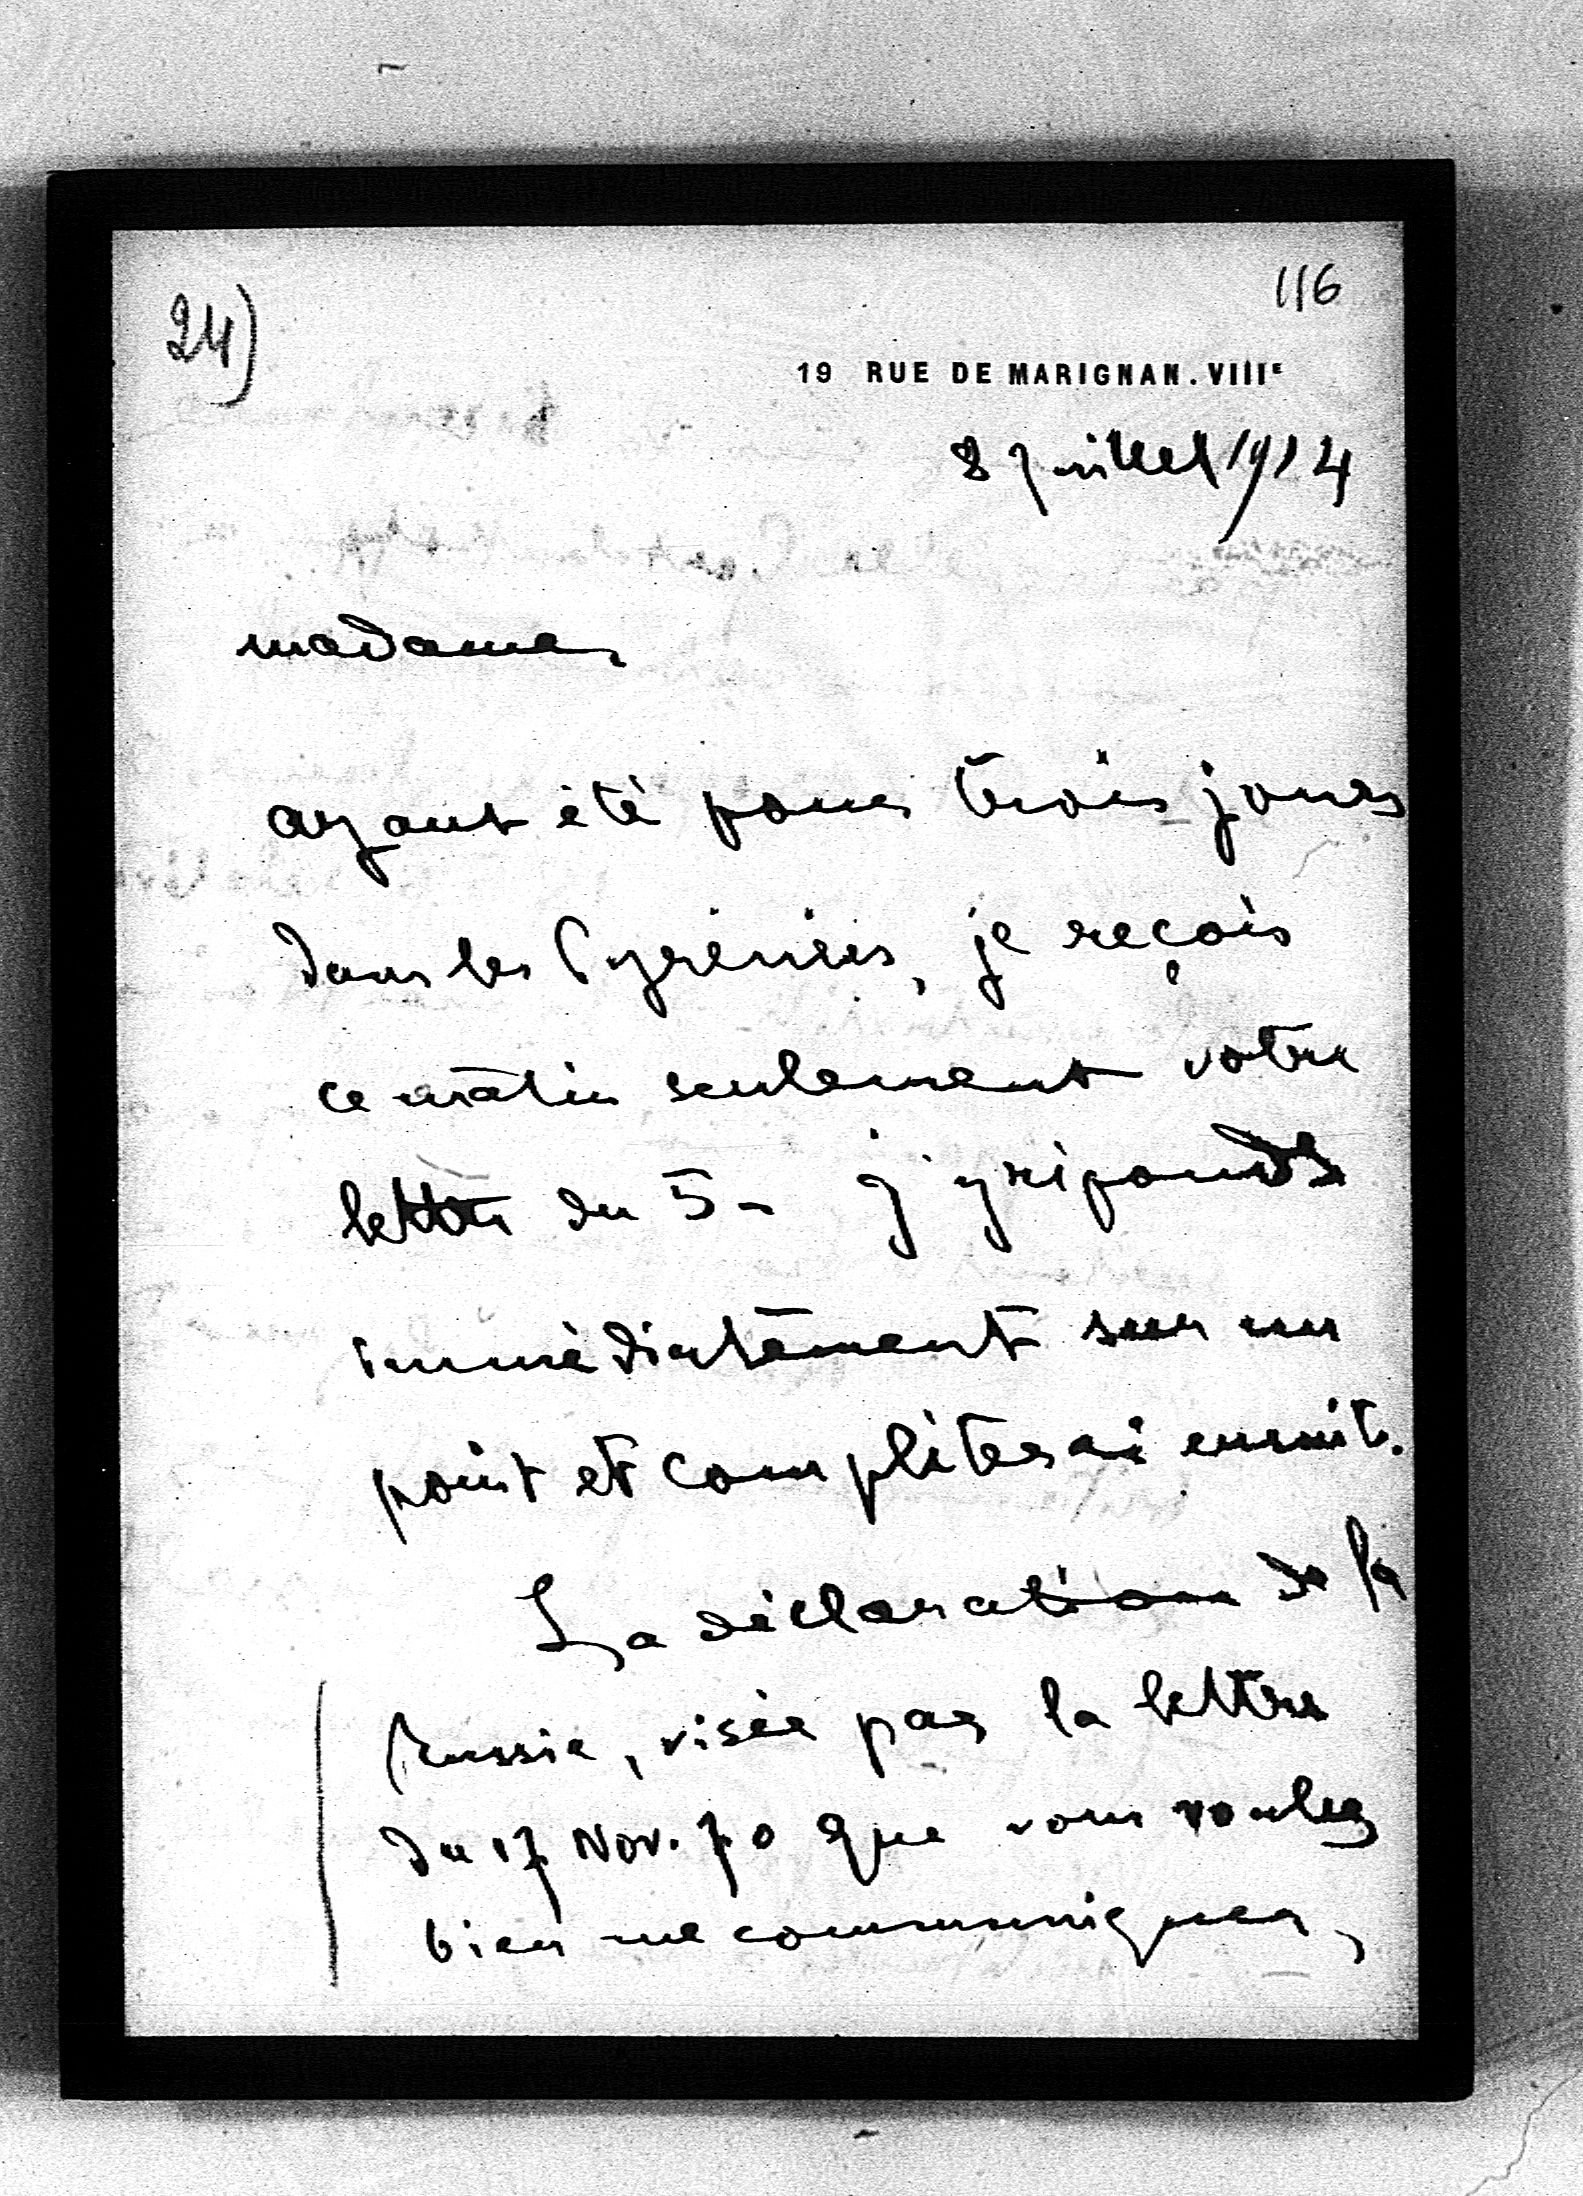 24)
116
19 RUE DE MARIGNAN. VIIIᵉ
8 juillet 1914
madame,
ayant été pour trois jours
dans les Pyrénées, je reçois
ce matin seulement votre
lettre du 5 - j'y réponds
immédiatement sur un
point et complèterai ensuite.
La déclaration de la
Russie, visée par la lettre
du 17 Nov. 70 que vous voulez
bien me communiquer,